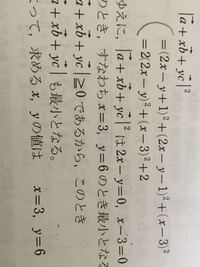 |a⃗+xb⃗+yc⃗|²
=(2x-y+1)²+(2x-y-1)²+(x-3)²
=2(2x-y)²+(x-3)²+2
ゆえに, |a⃗+xb⃗+yc⃗|² は 2x-y=0, x-3=0
のとき すなわち x=3, y=6 のとき最小とな
a⃗+xb⃗+yc⃗|≧0 であるから, このとき
a⃗+xb⃗+yc⃗| も最小となる。
って, 求める x, y の値は x=3, y=6